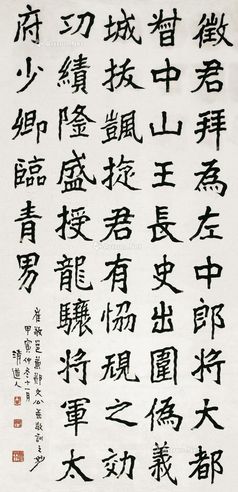 徵君拜為左中郎將大都
督中山王長史出圍偽義
城拔颽旋君有恊規之効
功績隆盛授龍驤將軍太
府少卿臨青男
崔敬邕兼鄭文公
甲寅仲冬十一月
清道人